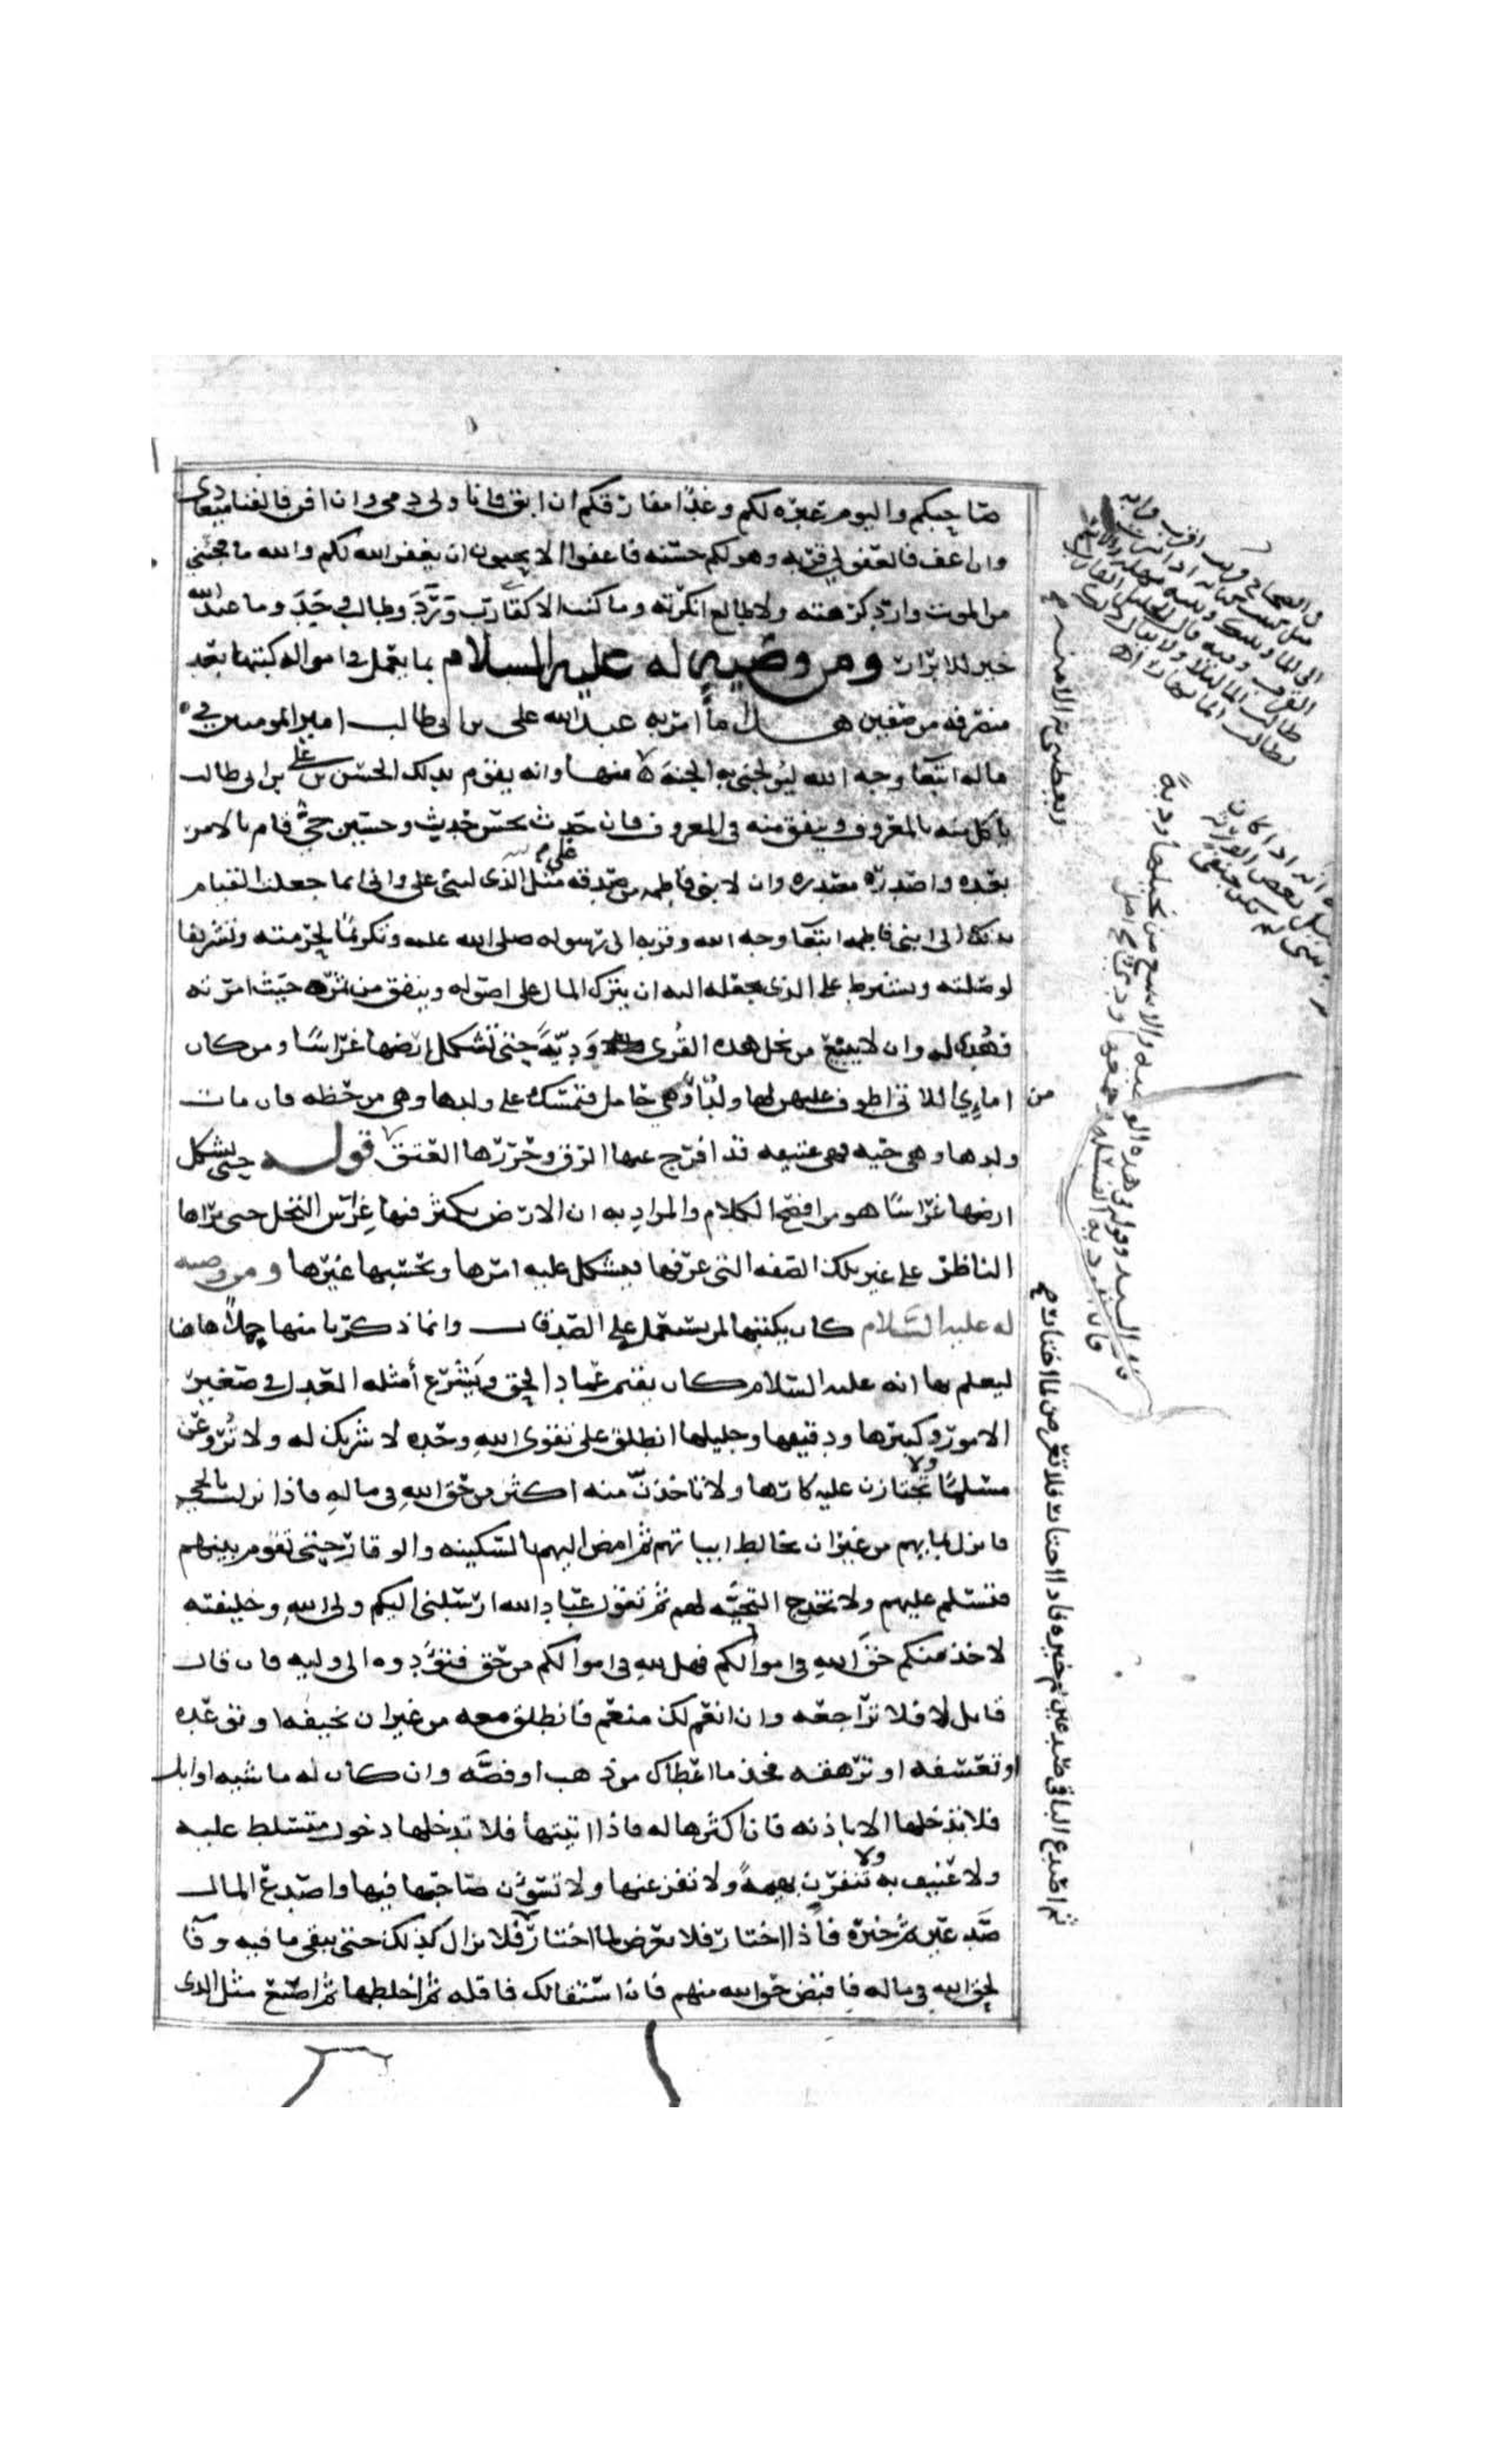 صاحبكم واليوم عبره لكم وغدا مفارقكم ان ابق فانا ولي دمي وان افن فالفنا ميعادي
وان اعف فالعفو لي قربه وهو لكم حسنه فاعفوا الا تحبون ان يغفر الله لكم والله ما فجئني
من الموت وارد كرهته ولا طالع انكرته وما كنت الا كقارب ورد وطالب وجد وما عند الله
خير للابرار ومن وصيه له عليه السلام بما يعمل في امواله كتبها بعد
منصرفه من صفين هذا ما امر به عبد الله علي بن ابي طالب امير المومنين في
ماله ابتغا وجه الله ليولجني به الجنة منها وانه يقوم بذلك الحسن بن علي بن ابي طالب
ياكل منه بالمعروف وينفق منه في المعروف فان حدث بحسن حدث وحسين حي قام بالامر
بعده واصدره مصدره وان لابني فاطمه من صدقه علي مثل الذي لبني علي واني انما جعلت القيام
بذلك الى ابني فاطمه ابتغا وجه الله وقربه الى رسوله صلى الله عليه وتكريما لحرمته وتشريفا
لوصلته ويشترط على الذي يجعله اليه ان يترك المال على اصوله وينفق من ثمره حيث امر به
وهدي له وان لا يبيع من نخل هذه القرى وديه حتى تشكل ارضها غراسا ومن كان
من امايي اللاتي اطوف عليهن لها ولد او هي حامل فتمسك على ولدها وهي من حظه فان مات
ولدها وهي حيه فهي عتيقه قد افرج عنها الرق وحررها العتق قوله حتى تشكل
ارضها غراسا هو من افصح الكلام والمراد به ان الارض يكثر فيها غراس النخل حتى يراها
الناظر على غير تلك الصفه التي عرفها فيشكل عليه امرها ويحسبها غيرها ومن وصيه
له عليه السلام كان يكتبها لمن يستعمل على الصدقات وانما ذكرنا منها جملا هاهنا
ليعلم بها انه عليه السلام كان يقيم عماد الحق ويشرع أمثله العدل في صغير
الامور وكبيرها ودقيقها وجليلها انطلق على تقوى الله وحده لا شريك له ولا تروعن
مسلما ولا تجتازن عليه كارها ولا تاخذن منه اكثر من حق الله في ماله فاذا نزلت بالحي
فانزل بمايهم من غير ان تخالط ابياتهم ثم امض اليهم بالسكينه والوقار حتى تقوم بينهم
فتسلم عليهم ولا تخدج التحيه لهم ثم تقول عباد الله ارسلني اليكم ولي الله وخليفته
لاخذ منكم حق الله في اموالكم فهل لله في اموالكم من حق فتؤدوه الى وليه فان قال
قايل لا فلا تراجعه وان انعم لك منعم فانطلق معه من غير ان تخيفه او توعده
او تعسفه او ترهقه فخذ ما اعطاك من ذهب او فضه وان كان له ماشيه او ابل
فلا تدخلها الا باذنه فان اكثرها له فاذا اتيتها فلا تدخلها دخول متسلط عليه
ولا عنيف به ولا تنفرن بهيمة ولا تفزعنها ولا تسوءن صاحبها فيها واصدع المال
صدعين ثم خيره فاذا اختار فلا تعرض لما اختار فلا تزال كذلك حتى يبقى ما فيه وفا
لحق الله في ماله فاقبض حق الله منهم فان استقالك فاقله ثم اخلطها ثم اصنع مثل الذي
ويعطيني به الامنه
ثم اصدع الباقي صدعين ثم خيره فاذا اختار فلا تعرض لما اختار